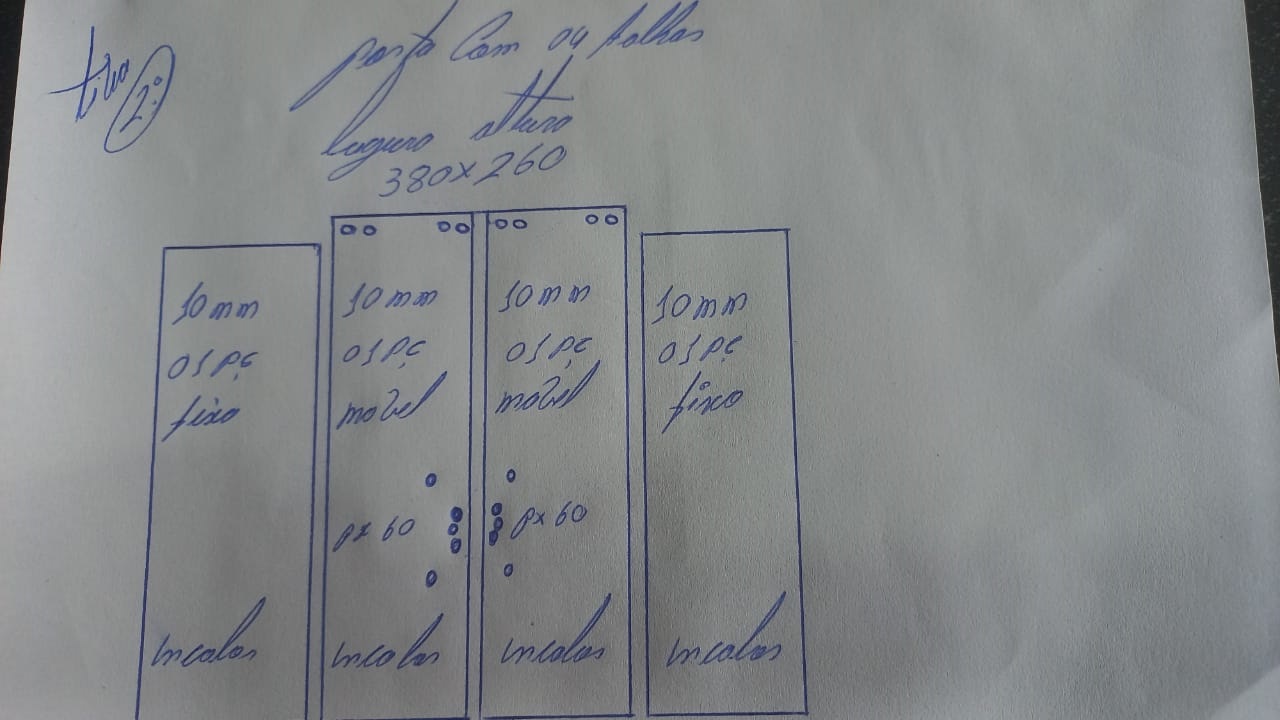 2º
porta Com 04 folhas
largura altura
380x260
10mm
01 pç
fixo
incolor
10mm
01 pç
movel
px 60
incolor
10mm
01 pç
movel
px 60
incolor
10mm
01 pç
fixo
incolor